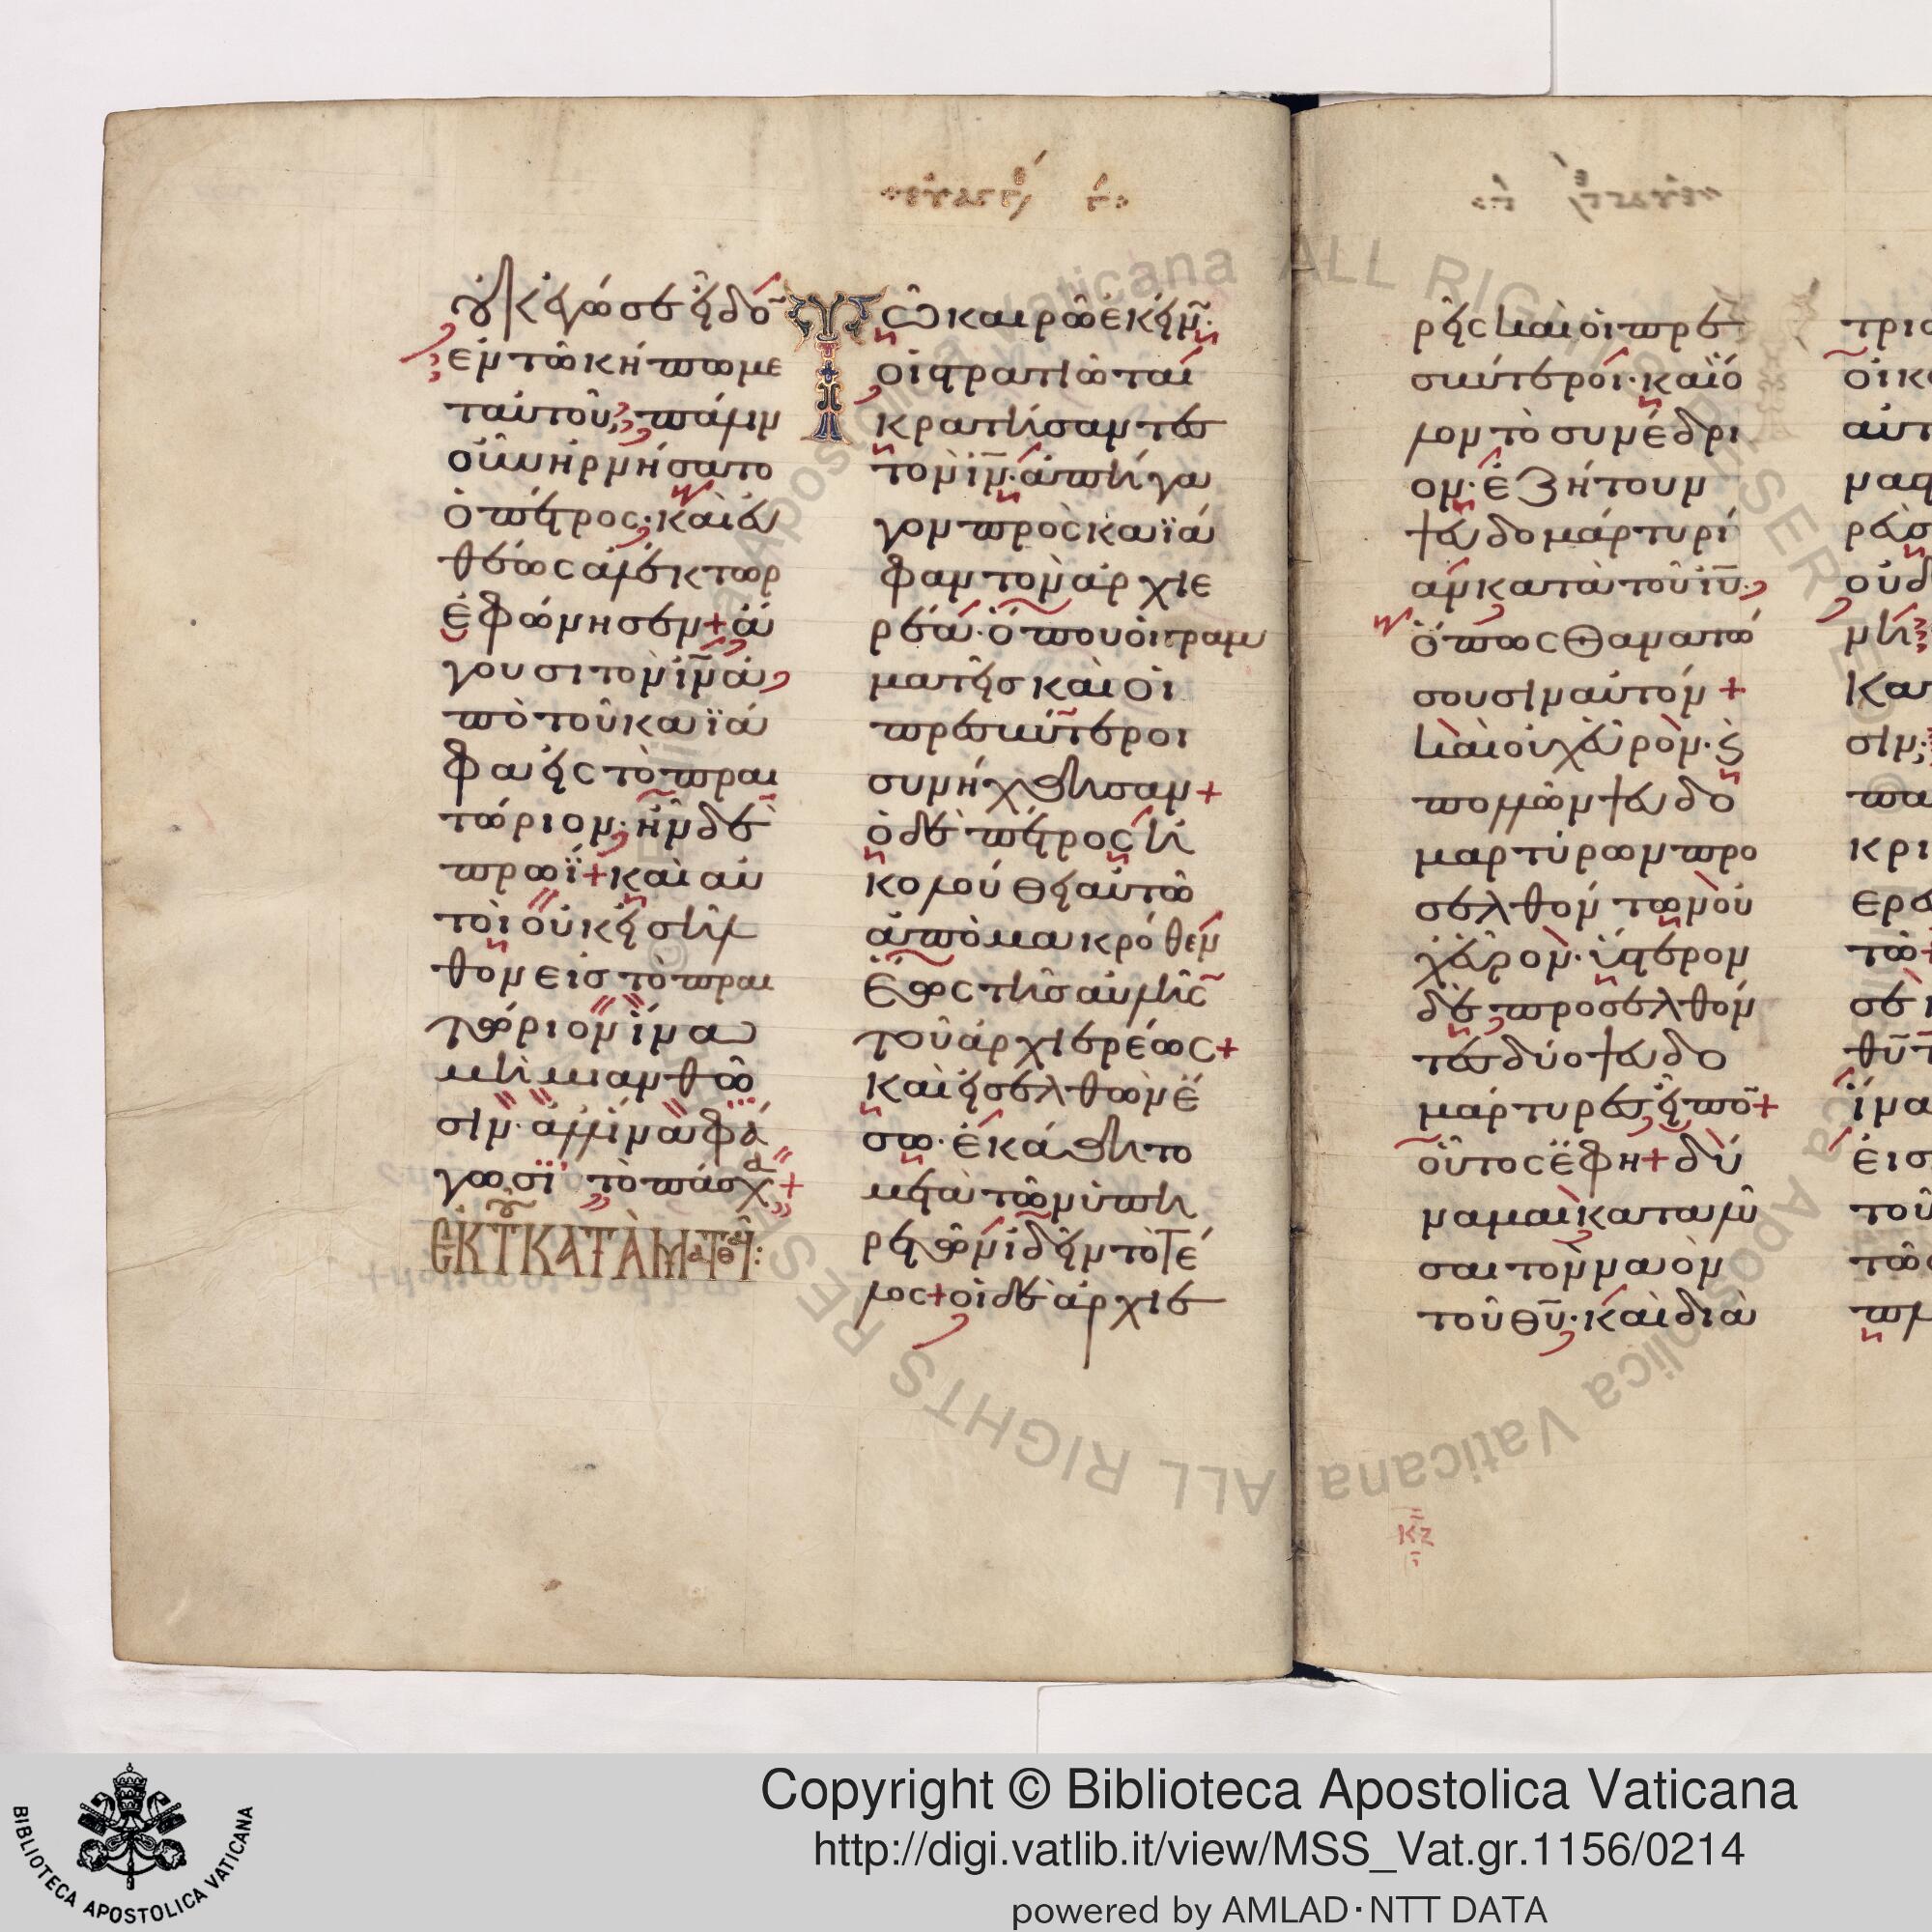 εὐαγγε γ
οὐκ ἐγώ σε εἶδον
ἐν τῷ κήπῳ με
τ' αὐτοῦ; πάλιν
οὖν ἠρνήσατο
ὁ πέτρος· καὶ εὐ
θέως ἀλέκτωρ
ἐφώνησεν + ἄ
γουσι τὸν ἰν ἀ
πὸ τοῦ καϊά
φα εἰς τὸ πραι
τώριον· ἦν δὲ
πρωΐ + καὶ αὐ
τοὶ οὐκ εἰσῆλ
θον εἰς τὸ πραι
τώριον ἵνα
μὴ μιανθῶ
σιν· ἀλλ' ἵνα φά
γωσι τὸ πάσχα +
ἐκ τοῦ κατὰ ματθ:
Τῷ καιρῷ ἐκείν·
οἱ στρατιῶται
κρατήσαντες
τὸν ἰν· ἀπήγα
γον πρὸς καϊά
φαν τὸν ἀρχιε
ρέα· ὅπου οἱ γραμ
ματεῖς καὶ οἱ
πρεσβύτεροι
συνήχθησαν +
ὁ δὲ πέτρος ἠ
κολούθει αὐτῷ
ἀπὸ μακρόθεν
ἕως τῆς αὐλῆς
τοῦ ἀρχιερέως +
καὶ εἰσελθὼν ἔ
σω· ἐκάθητο
μετὰ τῶν ὑπη
ρετῶν ἰδεῖν τὸ τέ
λος + οἱ δὲ ἀρχιε
ρεῖς καὶ οἱ πρε
σβύτεροι· καὶ ὅ
λον τὸ συνέδρι
ον· ἐζήτουν
ψευδομαρτυρί
αν κατὰ τοῦ ἰυ·
ὅπως θανατώ
σουσιν αὐτόν +
καὶ οὐχ εὗρον· καὶ
πολλῶν ψευδο
μαρτύρων προ
σελθόντων οὐ
χ εὗρον· ὕστερον
δὲ προσελθόν
τες δύο ψευδο
μάρτυρες εἶπον +
οὗτος ἔφη + δύ
ναμαι καταλῦ
σαι τὸν ναὸν
τοῦ θυ· καὶ διὰ
κζ
Copyright © Biblioteca Apostolica Vaticana
http://digi.vatlib.it/view/MSS_Vat.gr.1156/0214
powered by AMLAD·NTT DATA
BIBLIOTECA APOSTOLICA VATICANA